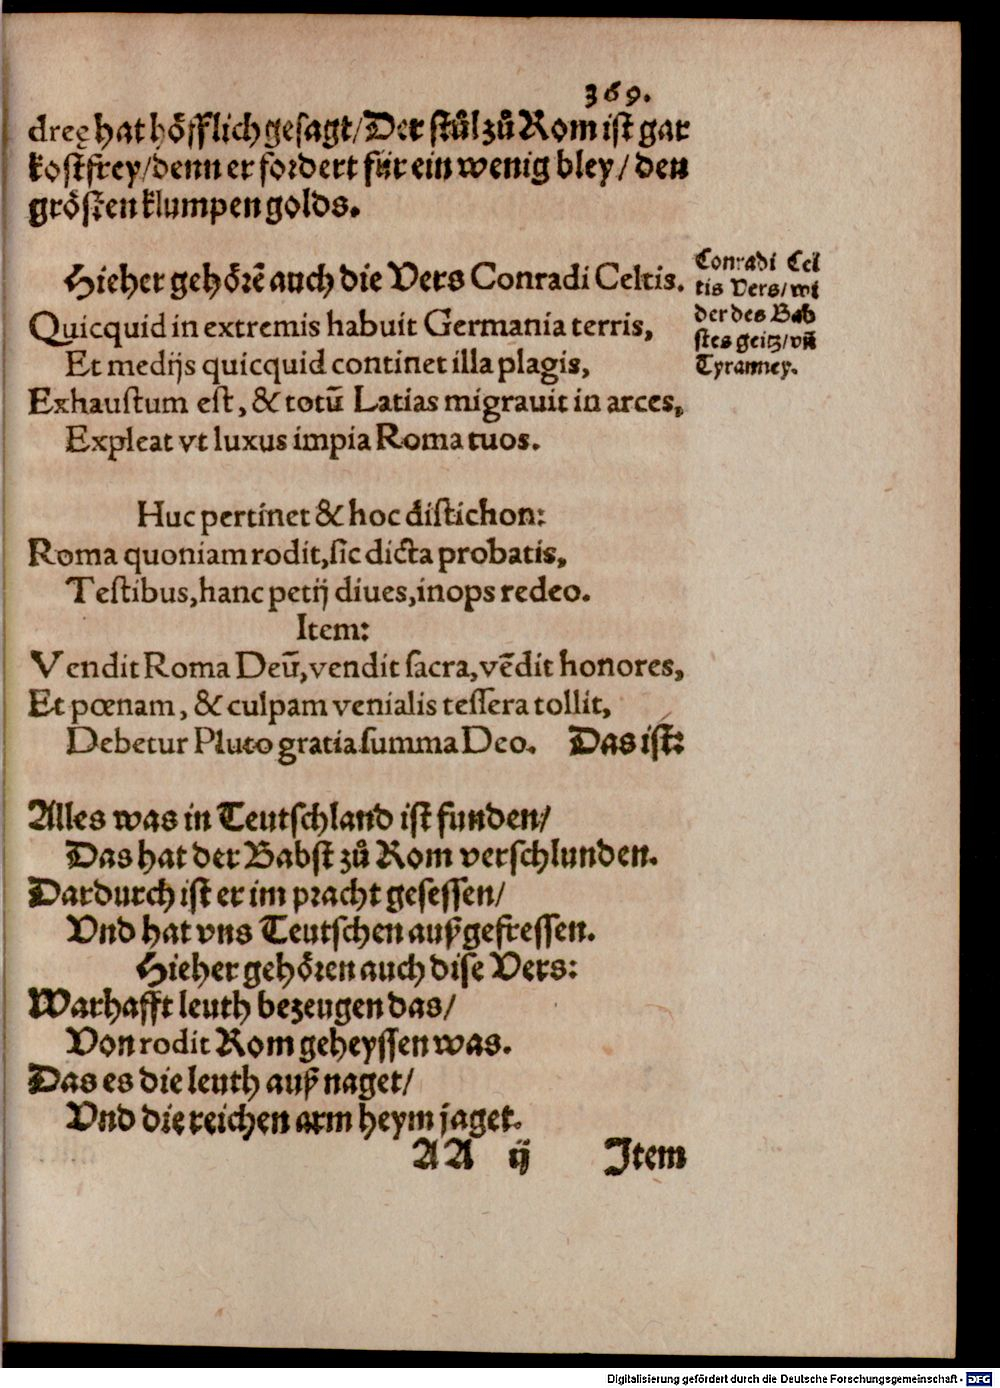 369.
dree hat höfflich gesagt/Der stůl zů Rom ist gar
kostfrey/denn er fordert für ein wenig bley/den
grösten klumpen golds.
Hieher gehörẽ auch die Vers Conradi Celtis.
Conradi Cel
tis Vers/wi
der des Bab
stes geitz/vñ
Tyranney.
Quicquid in extremis habuit Germania terris,
Et medijs quicquid continet illa plagis,
Exhaustum est, & totũ Latias migrauit in arces,
Expleat vt luxus impia Roma tuos.
Huc pertinet & hoc distichon:
Roma quoniam rodit, sic dicta probatis,
Testibus, hanc petij diues, inops redeo.
Item:
Vendit Roma Deũ, vendit sacra, vẽdit honores,
Et pœnam, & culpam venialis tessera tollit,
Debetur Pluto gratia summa Deo. Das ist:
Alles was in Teutschland ist funden/
Das hat der Babst zů Rom verschlunden.
Dardurch ist er im pracht gesessen/
Vnd hat vns Teutschen außgefressen.
Hieher gehören auch dise Vers:
Warhafft leuth bezeugen das/
Von rodit Rom geheyssen was.
Das es die leuth auß naget/
Vnd die reichen arm heym jaget.
AA ij Item
Digitalisierung gefördert durch die Deutsche Forschungsgemeinschaft - DFG